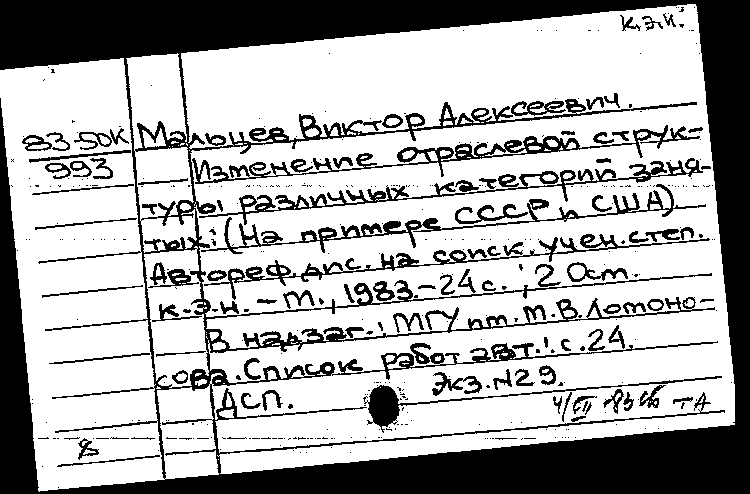 К.Э.Н.
83-50К Мальцев, Виктор Алексеевич.
993 Изменение отраслевой струк-
туры различных категорий заня-
тых: (На примере СССР и США)
Автореф. дис. на соиск. учен. степ.
к.э.н. - М., 1983. - 24 с.; 20 см.
В надзаг.: МГУ им. М.В. Ломоно-
сова. Список работ авт.: с. 24.
ДСП. Экз. N29.
4/III